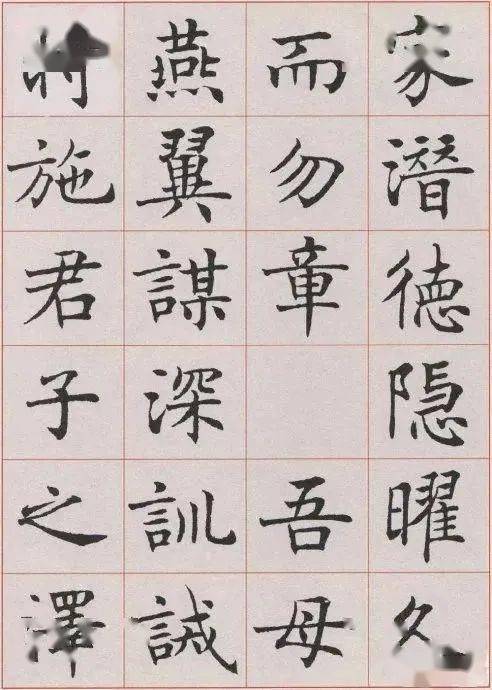 家潛德隱曜久
而勿章吾母
燕翼謀深訓誡
將施君子之澤